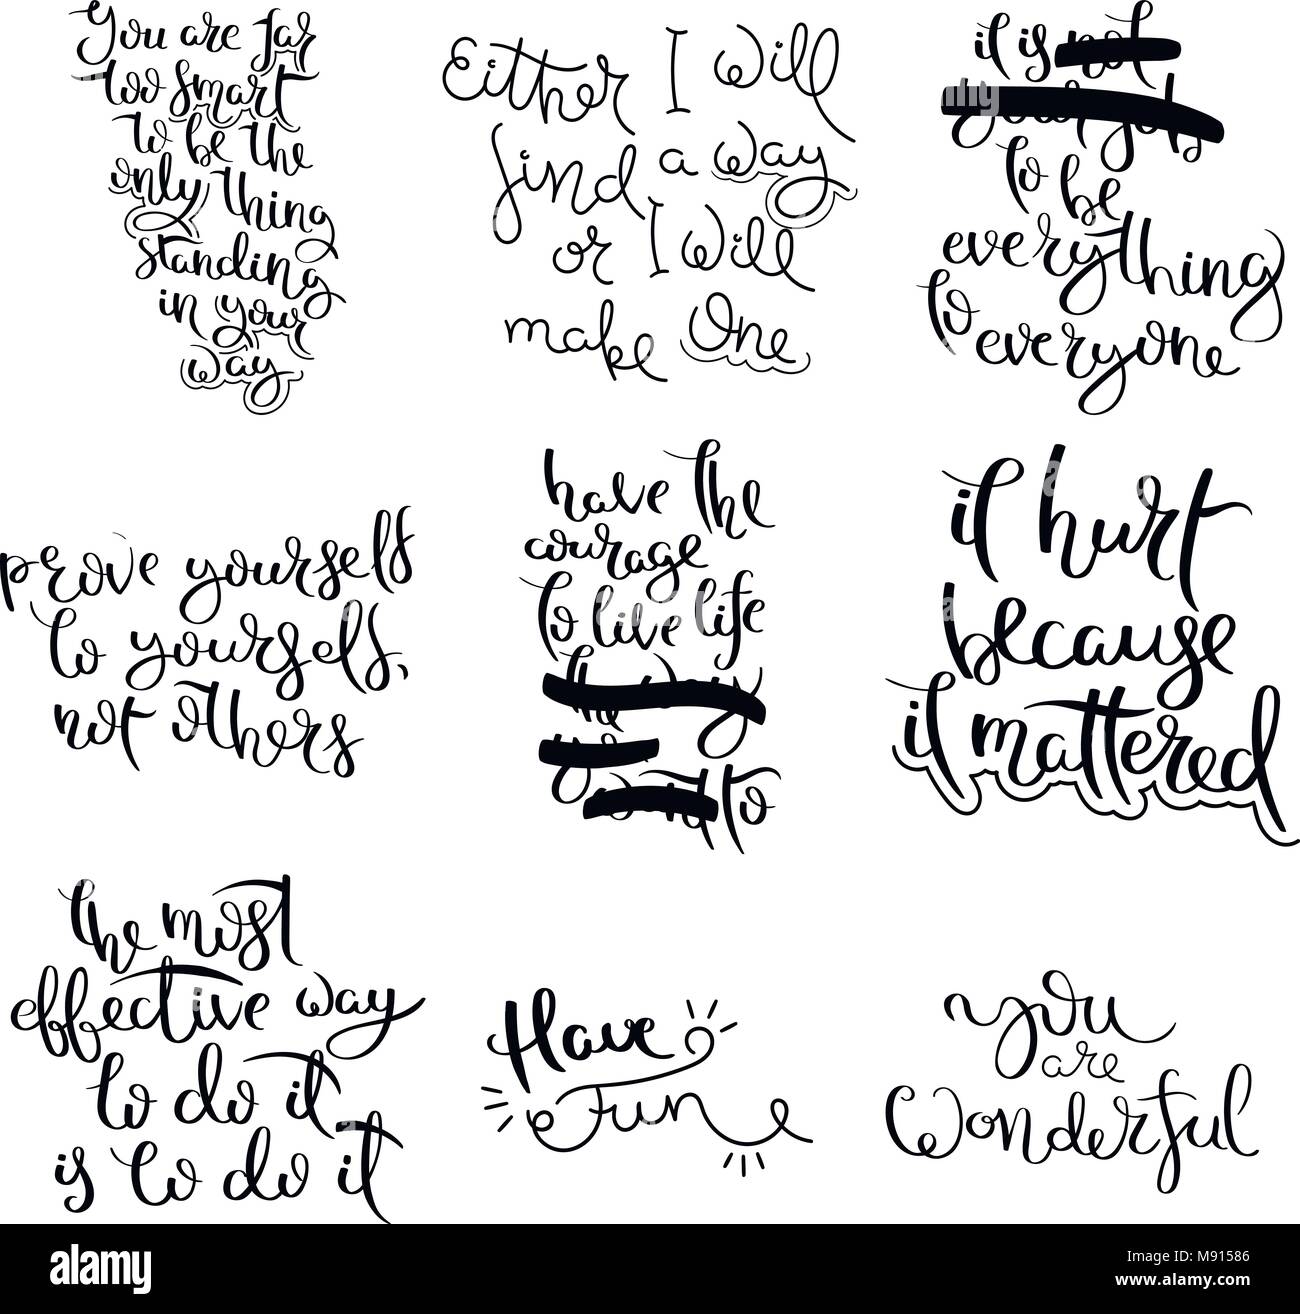 You are far
too smart
to be the
only thing
standing
in your
way
Either I will
find a way
or I will
make One
it is not
to be
everything
to everyone
prove yourself
to yourself,
not others
have the
courage
to live life
to
it hurt
because
it mattered
the most
effective way
to do it
is to do it
Have
Fun
you
are
Wonderful
alamy
Image ID: M91586
www.alamy.com